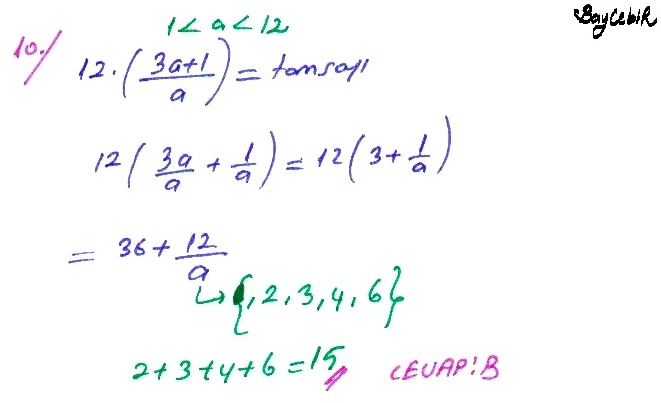 BayCebiR
1 < a < 12
10./ 12·(3a+1/a) = tamsayı
12(3a/a + 1/a) = 12(3 + 1/a)
= 36 + 12/a
↳ {, 2, 3, 4, 6}
2+3+4+6 = 15 CEVAP: B